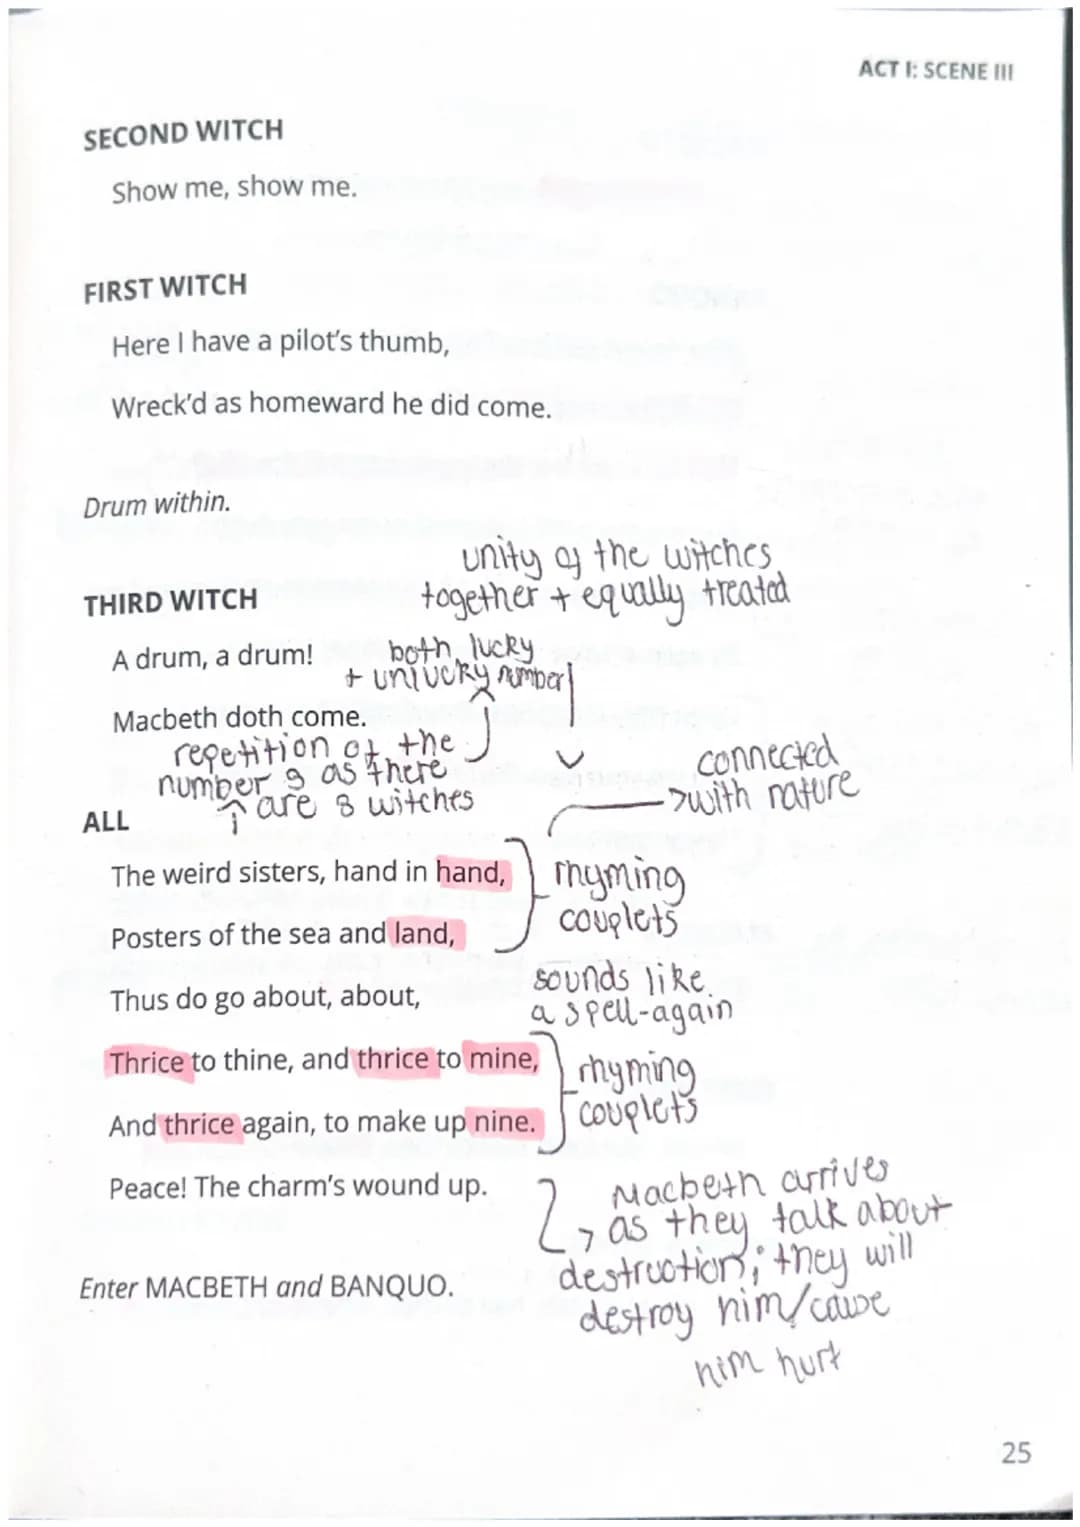 ACT I: SCENE III
SECOND WITCH
Show me, show me.
FIRST WITCH
Here I have a pilot's thumb,
Wreck'd as homeward he did come.
Drum within.
unity of the witches
together + equally treated
THIRD WITCH
A drum, a drum!
both lucky
+ unlucky number
Macbeth doth come.
repetition of the
number 3 as there
are 3 witches
connected
with nature
ALL
The weird sisters, hand in hand,
rhyming
couplets
Posters of the sea and land,
sounds like
a spell-again
Thus do go about, about,
Thrice to thine, and thrice to mine,
rhyming
couplets
And thrice again, to make up nine.
Peace! The charm's wound up.
Macbeth arrives
as they talk about
destruction; they will
destroy him/cause
him hurt
Enter MACBETH and BANQUO.
25